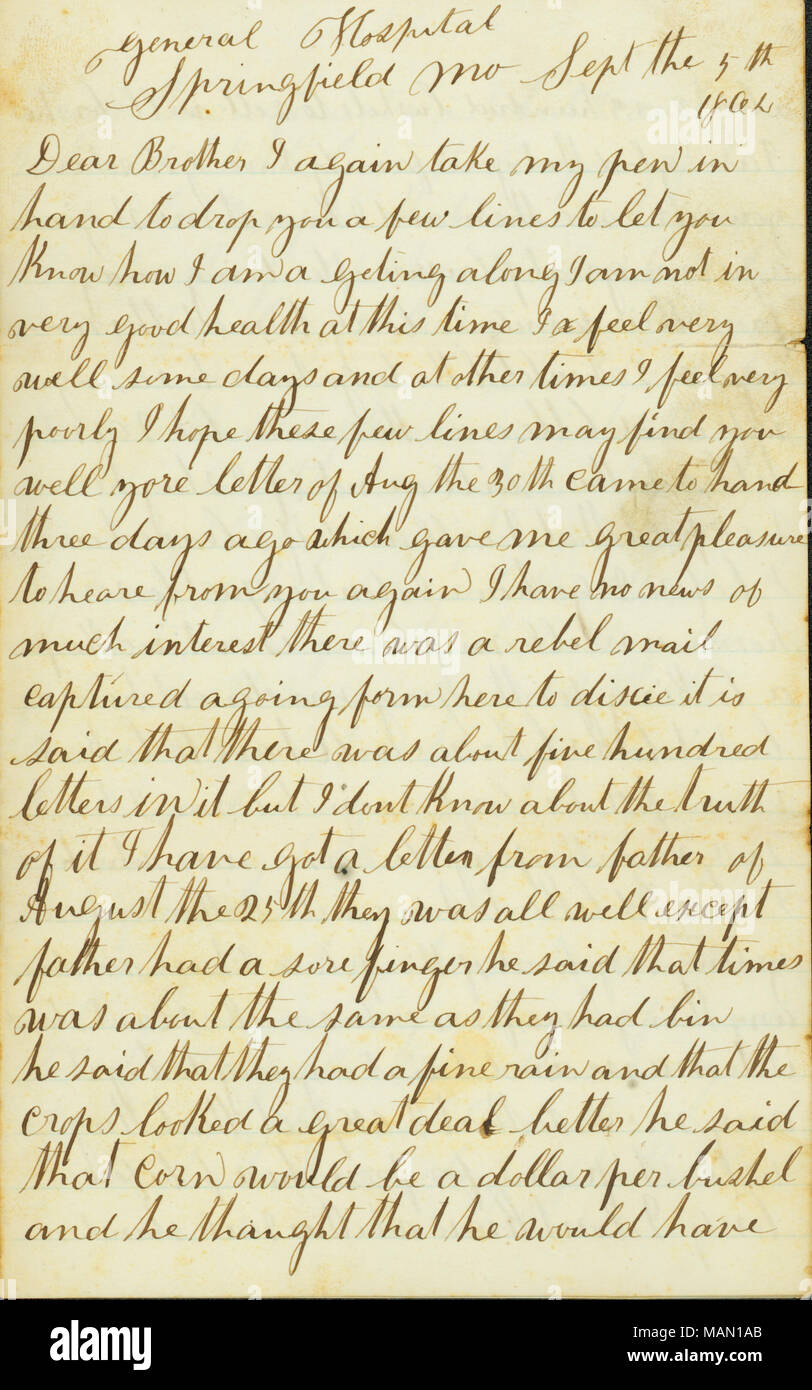 General Hospital
Springfield Mo Sept the 5th
1862
Dear Brother I again take my pen in
hand to drop you a few lines to let you
Know how I am a geting along I am not in
very good health at this time I feel very
well some days and at other times I feel very
poorly I hope these few lines may find you
well yore letter of Aug the 30th came to hand
three days ago which gave me great pleasure
to heare from you again I have no news of
much interest there was a rebel mail
captured agoing form here to dixie it is
said that there was about five hundred
letters in it but I dont Know about the truth
of it I have got a letter from father of
August the 25th they was all well except
father had a sore finger he said that times
was about the same as they had bin
he said that they had a fine rain and that the
crops looked a great deal better he said
that Corn would be a dollar per bushel
and he thaught that he would have
alamy
Image ID: MAN1AB
www.alamy.com